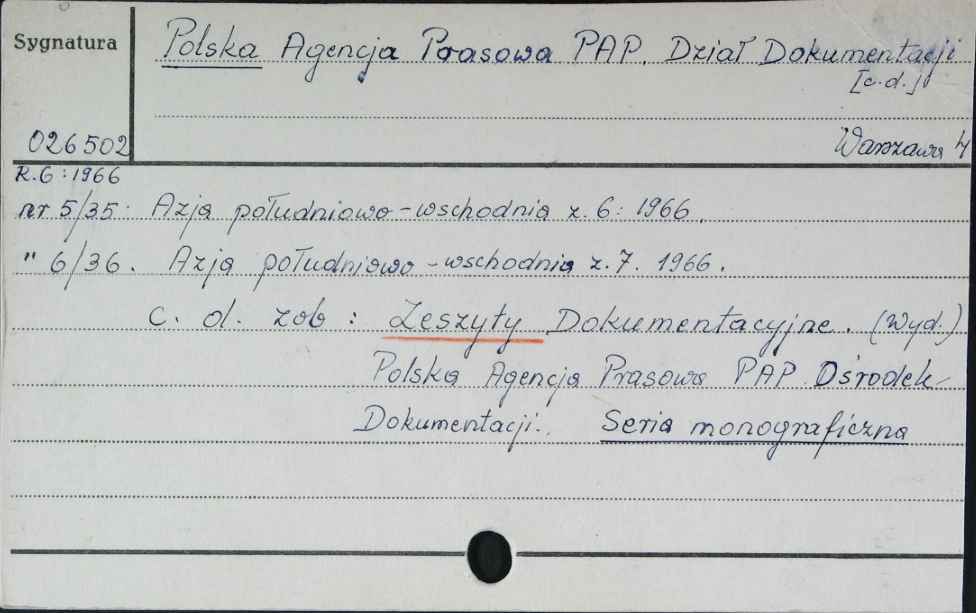 Sygnatura
Polska Agencja Prasowa PAP. Dział Dokumentacji
[c.d.]
026502
Warszawa 4
R.6:1966
nr 5/35. Azja południowo-wschodnia z.6: 1966.
" 6/36. Azja południowo-wschodnia z.7. 1966.
c. d. zob: Zeszyty Dokumentacyjne. (Wyd.)
Polska Agencja Prasowa PAP. Ośrodek
Dokumentacji. Seria monograficzna